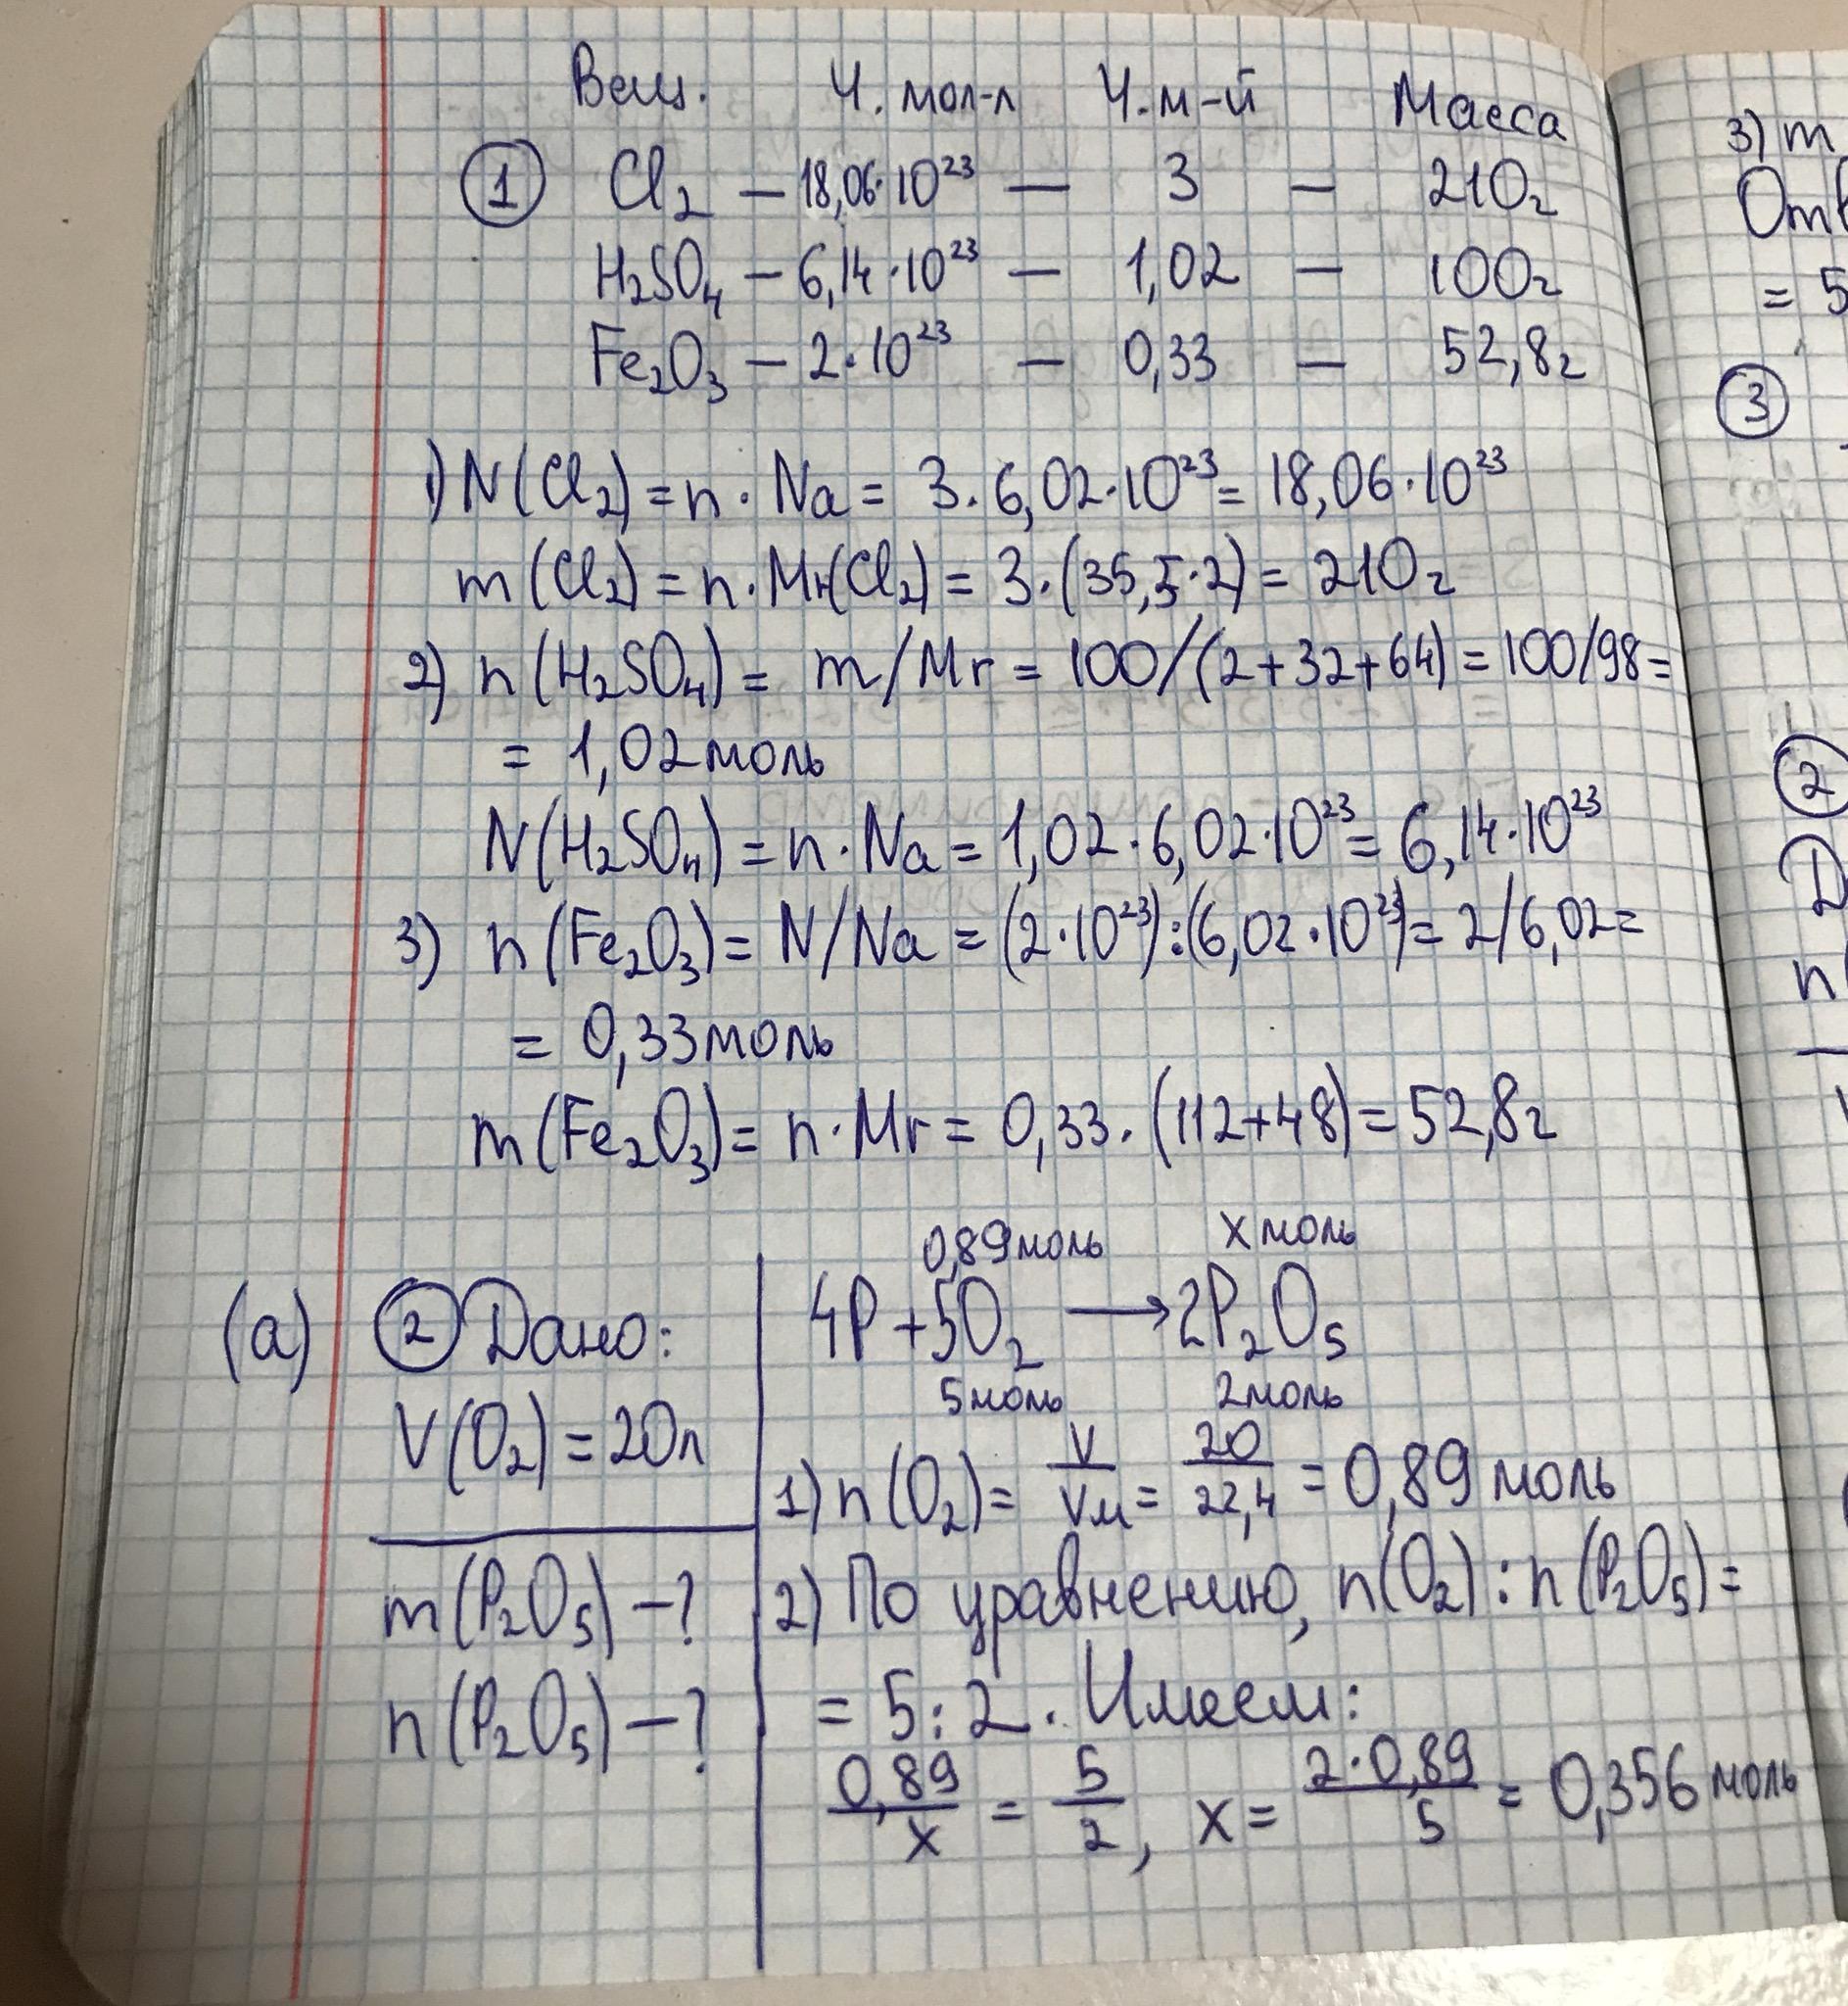 Вещ. Ч. мол-л Ч.м-й Масса
① Cl₂ – 18,06·10²³ – 3 – 210г
H₂SO₄ – 6,14·10²³ – 1,02 – 100г
Fe₂O₃ – 2·10²³ – 0,33 – 52,8г
1) N(Cl₂) = n · Na = 3·6,02·10²³ = 18,06·10²³
m(Cl₂) = n·Mr(Cl₂) = 3·(35,5·2) = 210г
2) n(H₂SO₄) = m/Mr = 100/(2+32+64) = 100/98 =
= 1,02моль
N(H₂SO₄) = n·Na = 1,02·6,02·10²³ = 6,14·10²³
3) n(Fe₂O₃) = N/Na = (2·10²³):(6,02·10²³) = 2/6,02 =
= 0,33моль
m(Fe₂O₃) = n·Mr = 0,33·(112+48) = 52,8г
(а) ② Дано:
V(O₂) = 20л
m(P₂O₅) – ?
n(P₂O₅) – ?
0,89моль x моль
4P + 5O₂ → 2P₂O₅
5моль 2моль
1) n(O₂) = V/Vм = 20/22,4 = 0,89 моль
2) По уравнению, n(O₂) : n(P₂O₅) =
= 5:2. Имеем:
0,89/x = 5/2, x = 2·0,89/5 = 0,356 моль
3) m
Отв
= 5
③
②
Д
n(